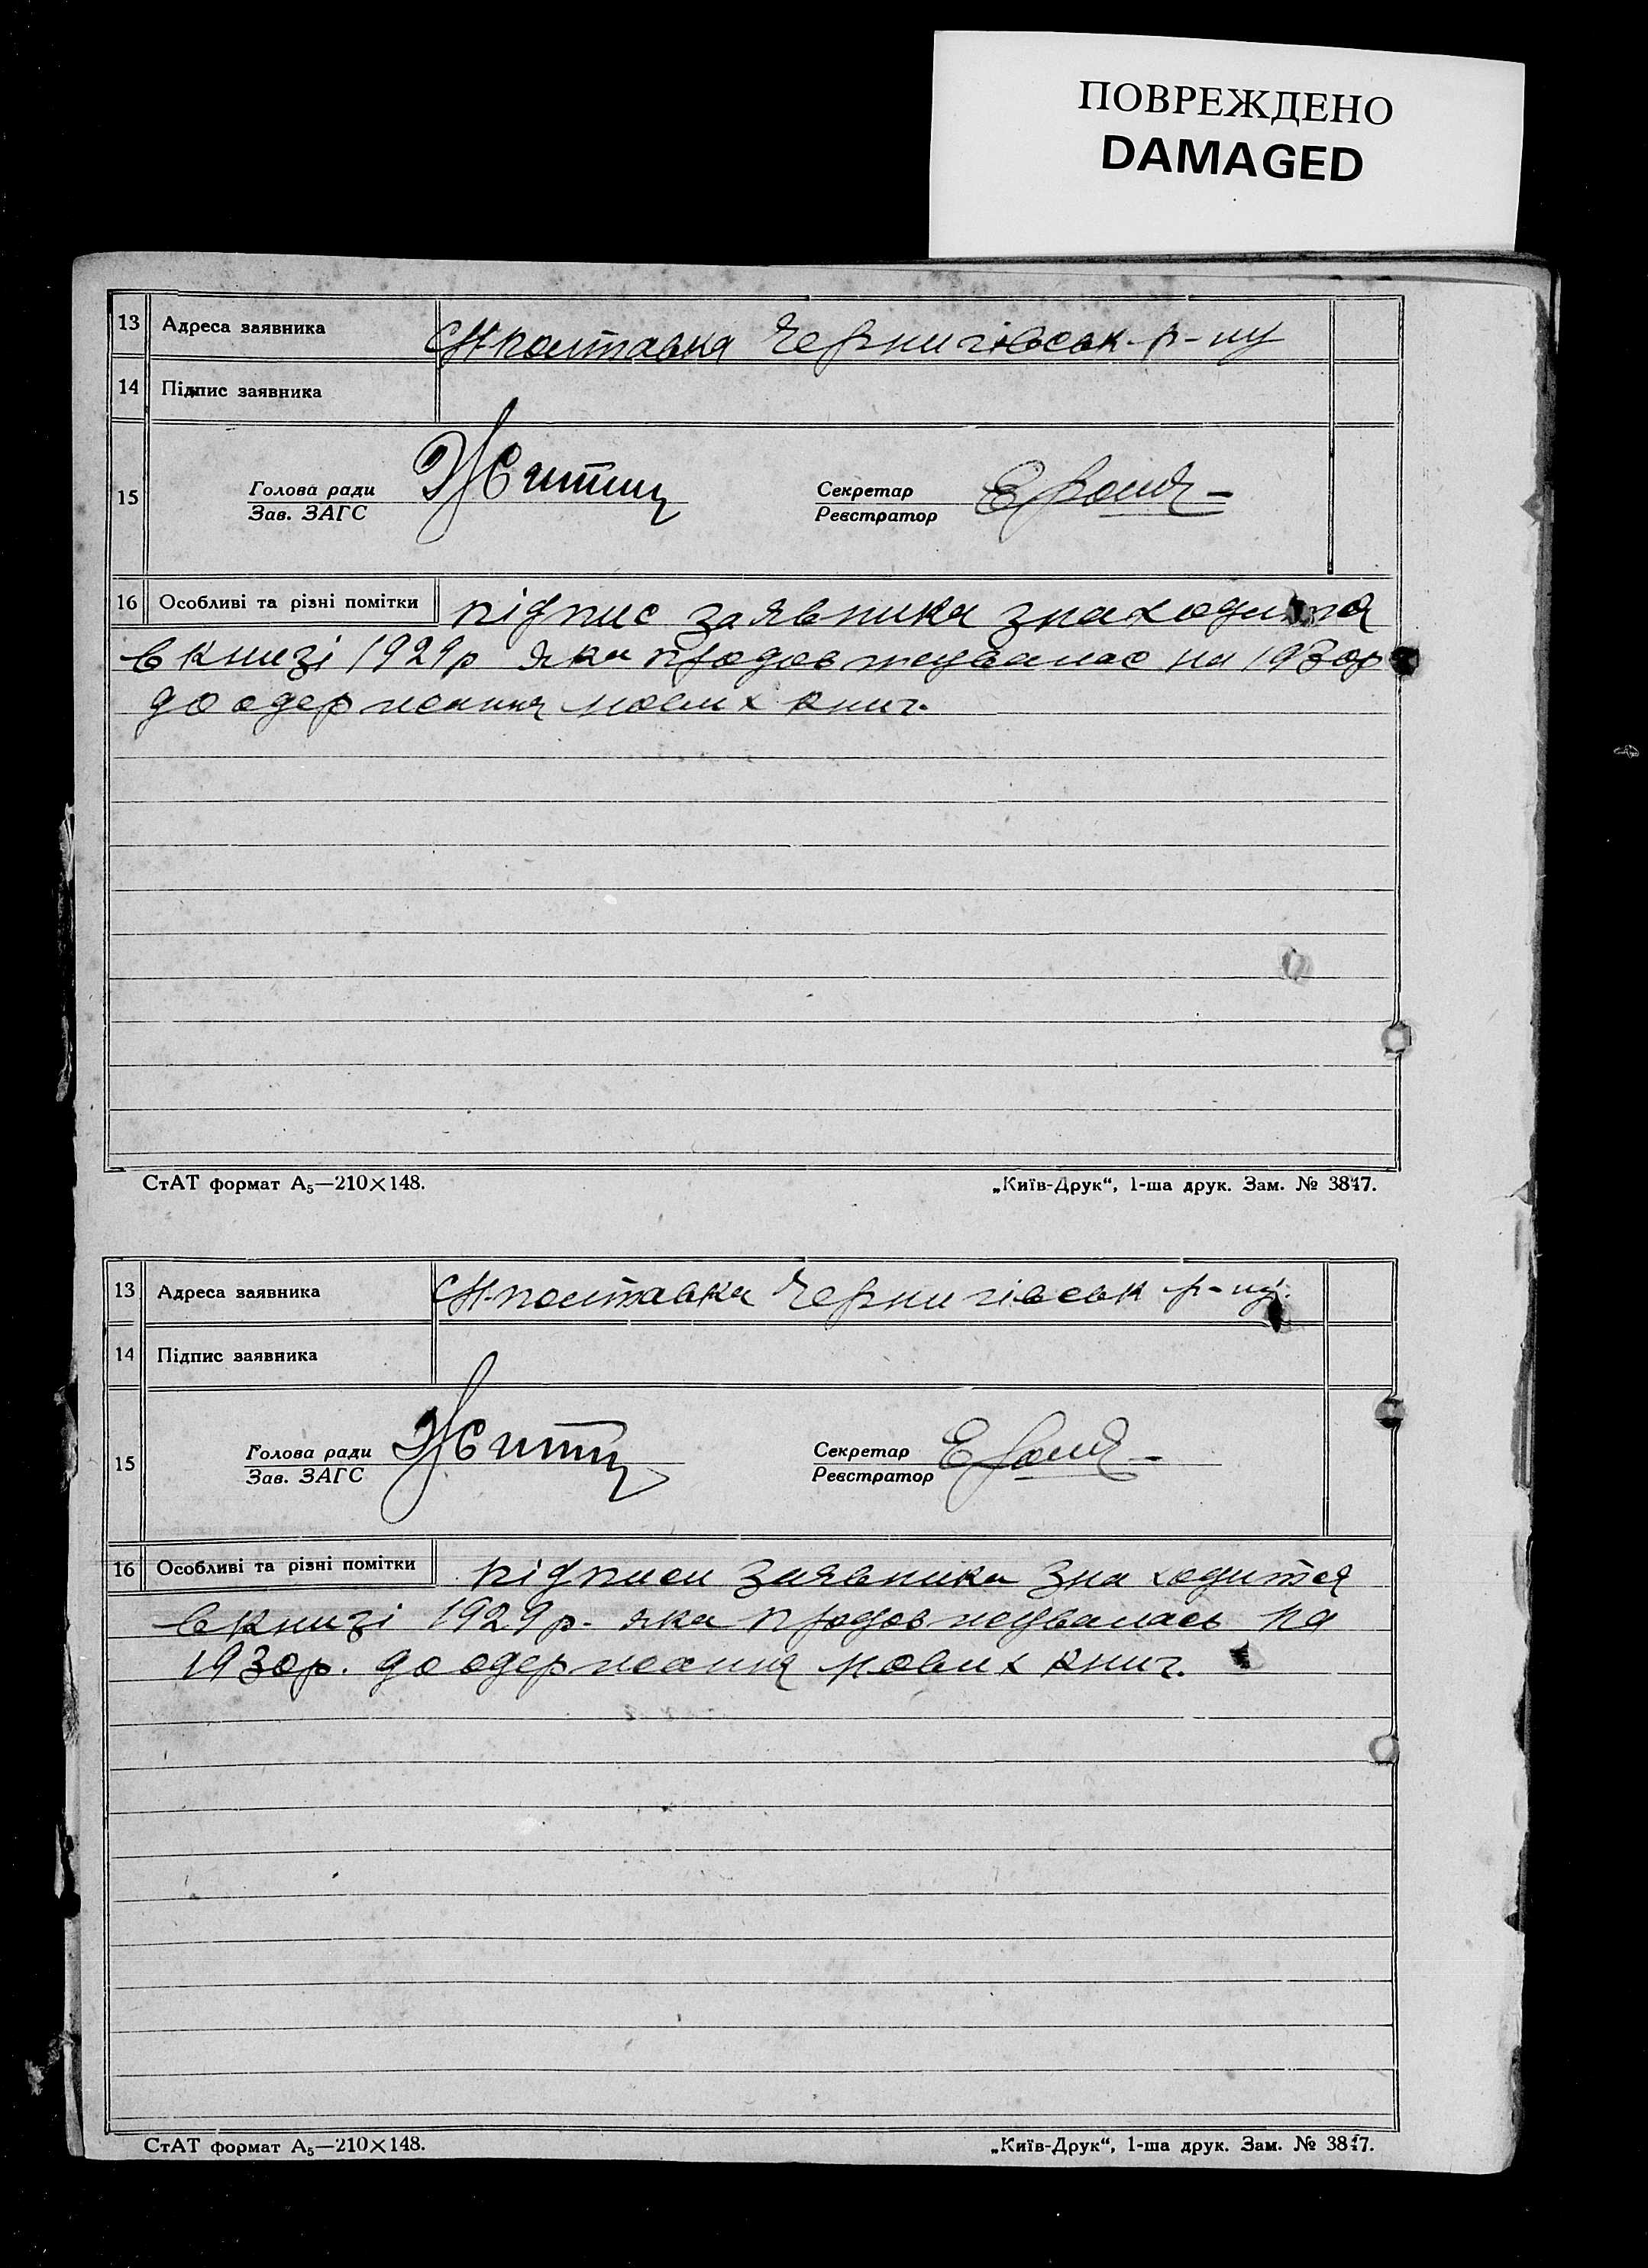 ПОВРЕЖДЕНО
DAMAGED
13 Адреса заявника Чернигівськ. р-ну
14 Підпис заявника
15 Голова ради Секретар
Зав. ЗАГС Реєстратор
16 Особливі та різні помітки підпис заявника знаходится
в книзі 1929р яка продовжувалас на 1930р
до одержання нових книг.
СтАТ формат А₅—210×148. „Київ-Друк“, 1-ша друк. Зам. № 3847.
13 Адреса заявника Чернигівськ р-ну.
14 Підпис заявника
15 Голова ради Секретар
Зав. ЗАГС Реєстратор
16 Особливі та різні помітки підписи заявника знаходится
в книзі 1929р. яка продовжувалась на
1930р. до одержання нових книг.
СтАТ формат А₅—210×148. „Київ-Друк“, 1-ша друк. Зам. № 3847.